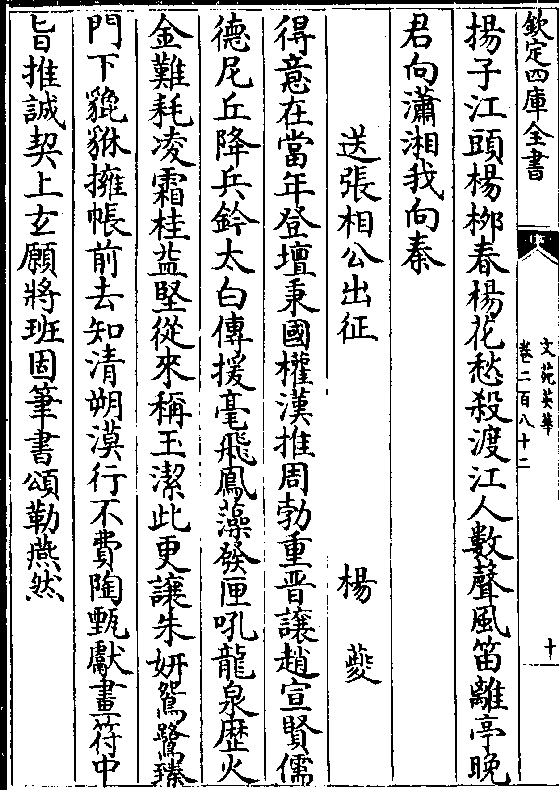 欽定四庫全書
文苑英華
卷二百八十二
十
揚子江頭楊柳春楊花愁殺渡江人數聲風笛離亭晚
君向瀟湘我向秦
送張相公出征 楊夔
得意在當年登壇秉國權漢推周勃重晋讓趙宣賢儒
德尼丘降兵鈐太白傳援毫飛鳳藻發匣吼龍泉歴火
金難耗凌霜桂益堅從來稱玉潔此更讓朱妍鴛鷺臻
門下貔貅擁帳前去知清朔漠行不費陶甄獻畫符中
旨推誠契上玄願將班固筆書頌勒燕然